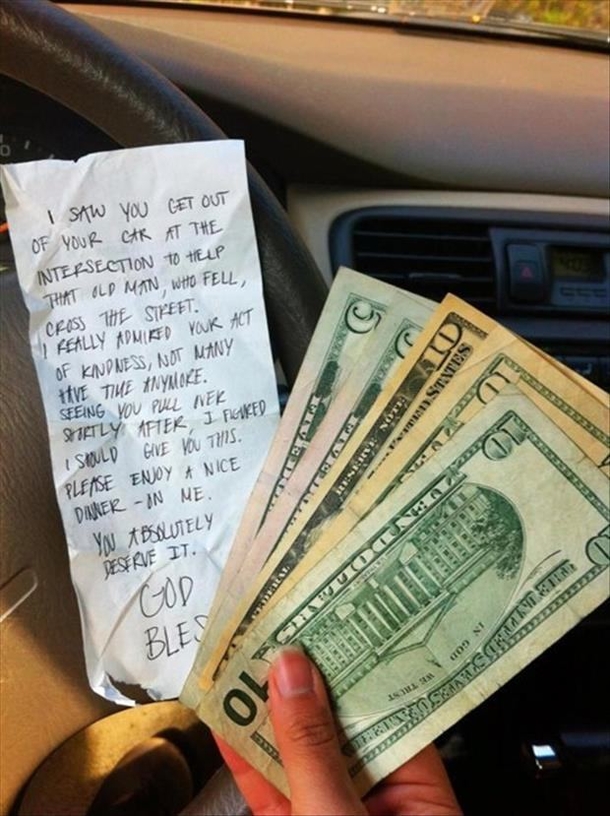 I SAW YOU GET OUT
OF YOUR CAR AT THE
INTERSECTION TO HELP
THAT OLD MAN, WHO FELL,
CROSS THE STREET.
I REALLY ADMIRED YOUR ACT
OF KINDNESS, NOT MANY
HAVE TIME ANYMORE.
SEEING YOU PULL OVER
SHORTLY AFTER, I FIGURED
I SHOULD GIVE YOU THIS.
PLEASE ENJOY A NICE
DINNER - ON ME.
YOU ABSOLUTELY
DESERVE IT.
GOD
BLES
5
10
RESERVE NOTE
FEDERAL
STATES
10
10
IN GOD
WE TRUST
THE UNITED STATES OF AMERICA
10